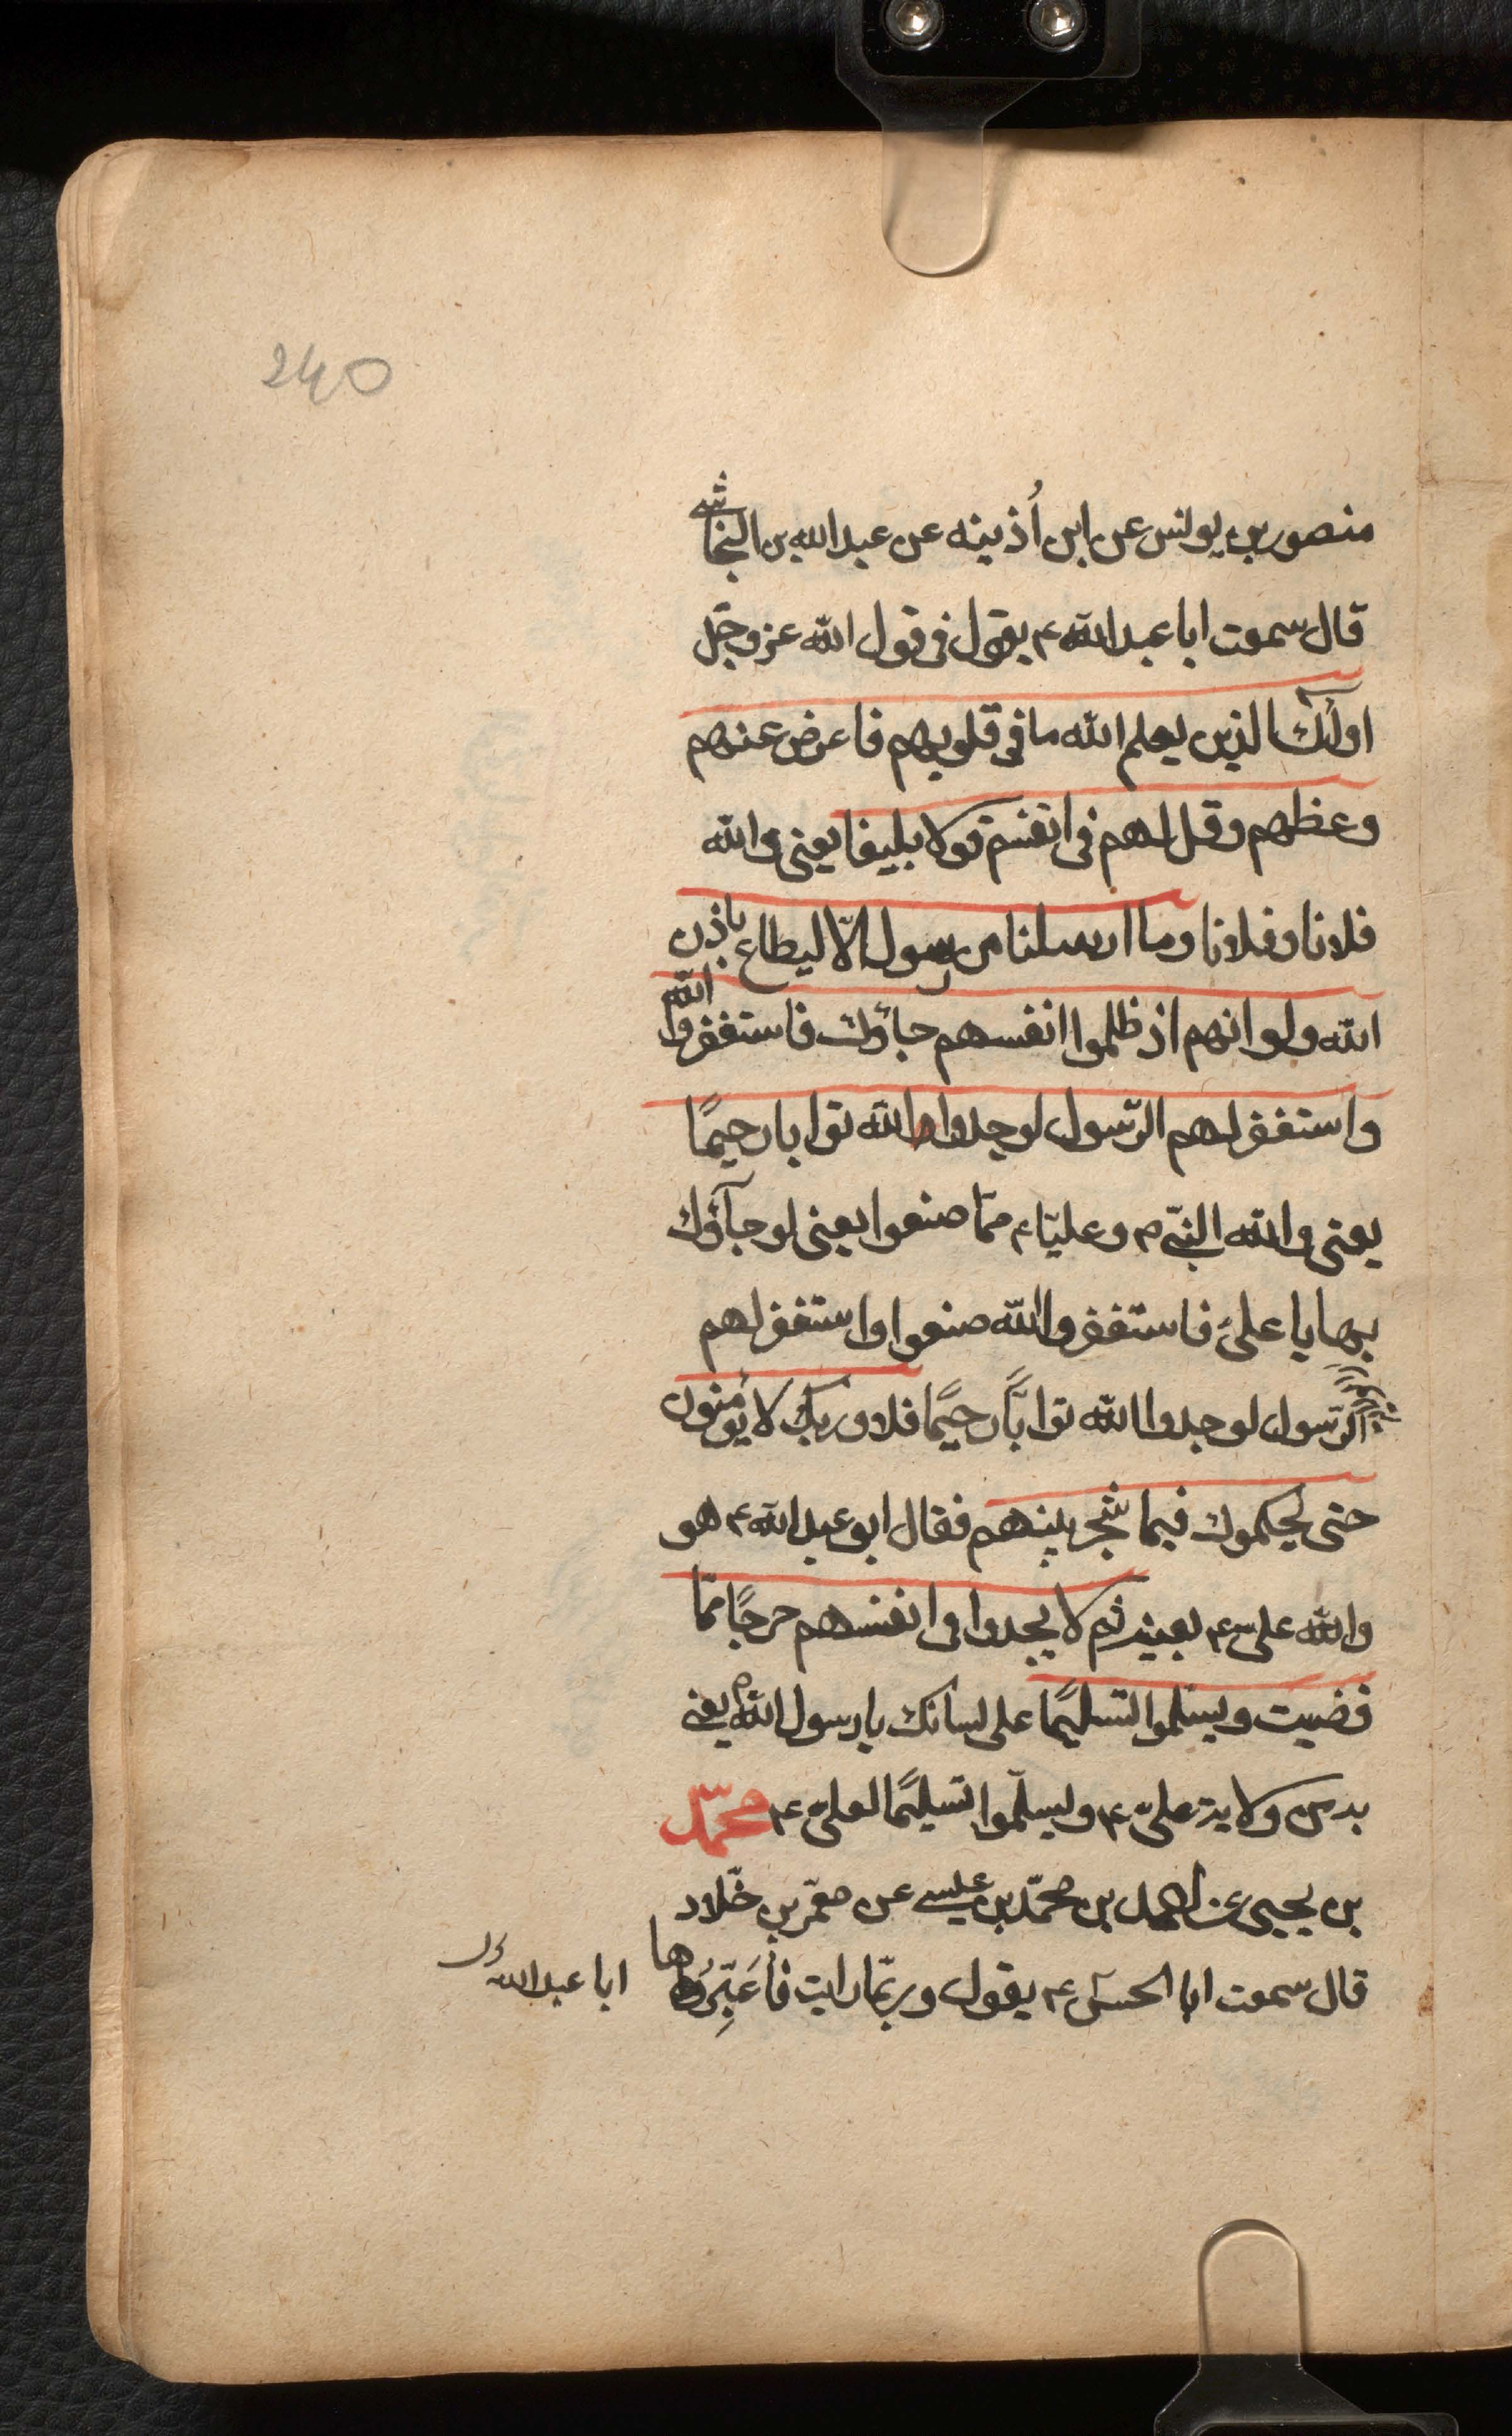 240
منصور بن يونس عن ابن أُذينه عن عبد الله بن النجاشى
قال سمعت ابا عبد الله ع يقول فى قول الله عز وجّل
اولٰئك الذين يعلم الله ما فى قلوبهم فاعرض عنهم
وعظهم وقل لهم فى انفسهم قولا بليغا يعنى والله
فلانا وفلانا وما ارسلنا من رسول الّا ليطاع باذن
الله ولو انهم اذ ظلموا انفسهم جاؤك فاستغفروا الله
واستغفر لهم الرّسول لوجدوا الله توابا رحيمًا
يعنى والله النبىّ ص وعليّا ع ممّا صنعوا يعنى لو جآؤك
بها يا علىّ فاستغفروا الله صنعوا واستغفر لهم
الرّسول لوجدوا الله توابًّا رحيًما فلا وربك لا يؤمنون
حتى يحكموك فيما شجر بينهم فقال ابو عبد الله ع هو
والله على ع بعينه ثم لا يجدوا فى انفسهم حرجًا ممّا
قضيت ويسلّموا تسليمًا على لسانك يا رسول الله ص يعنى
به من ولاية علىّ ع ويسلّموا تسليمًا لعلىّ ع محمّد
بن يحيى عن احمد بن محمّد بن عيسى عن معمّر بن خلّاد
قال سمعت ابا الحسن ع يقول وربّما رايت فأعَبِّرُها
ابا عبد الله